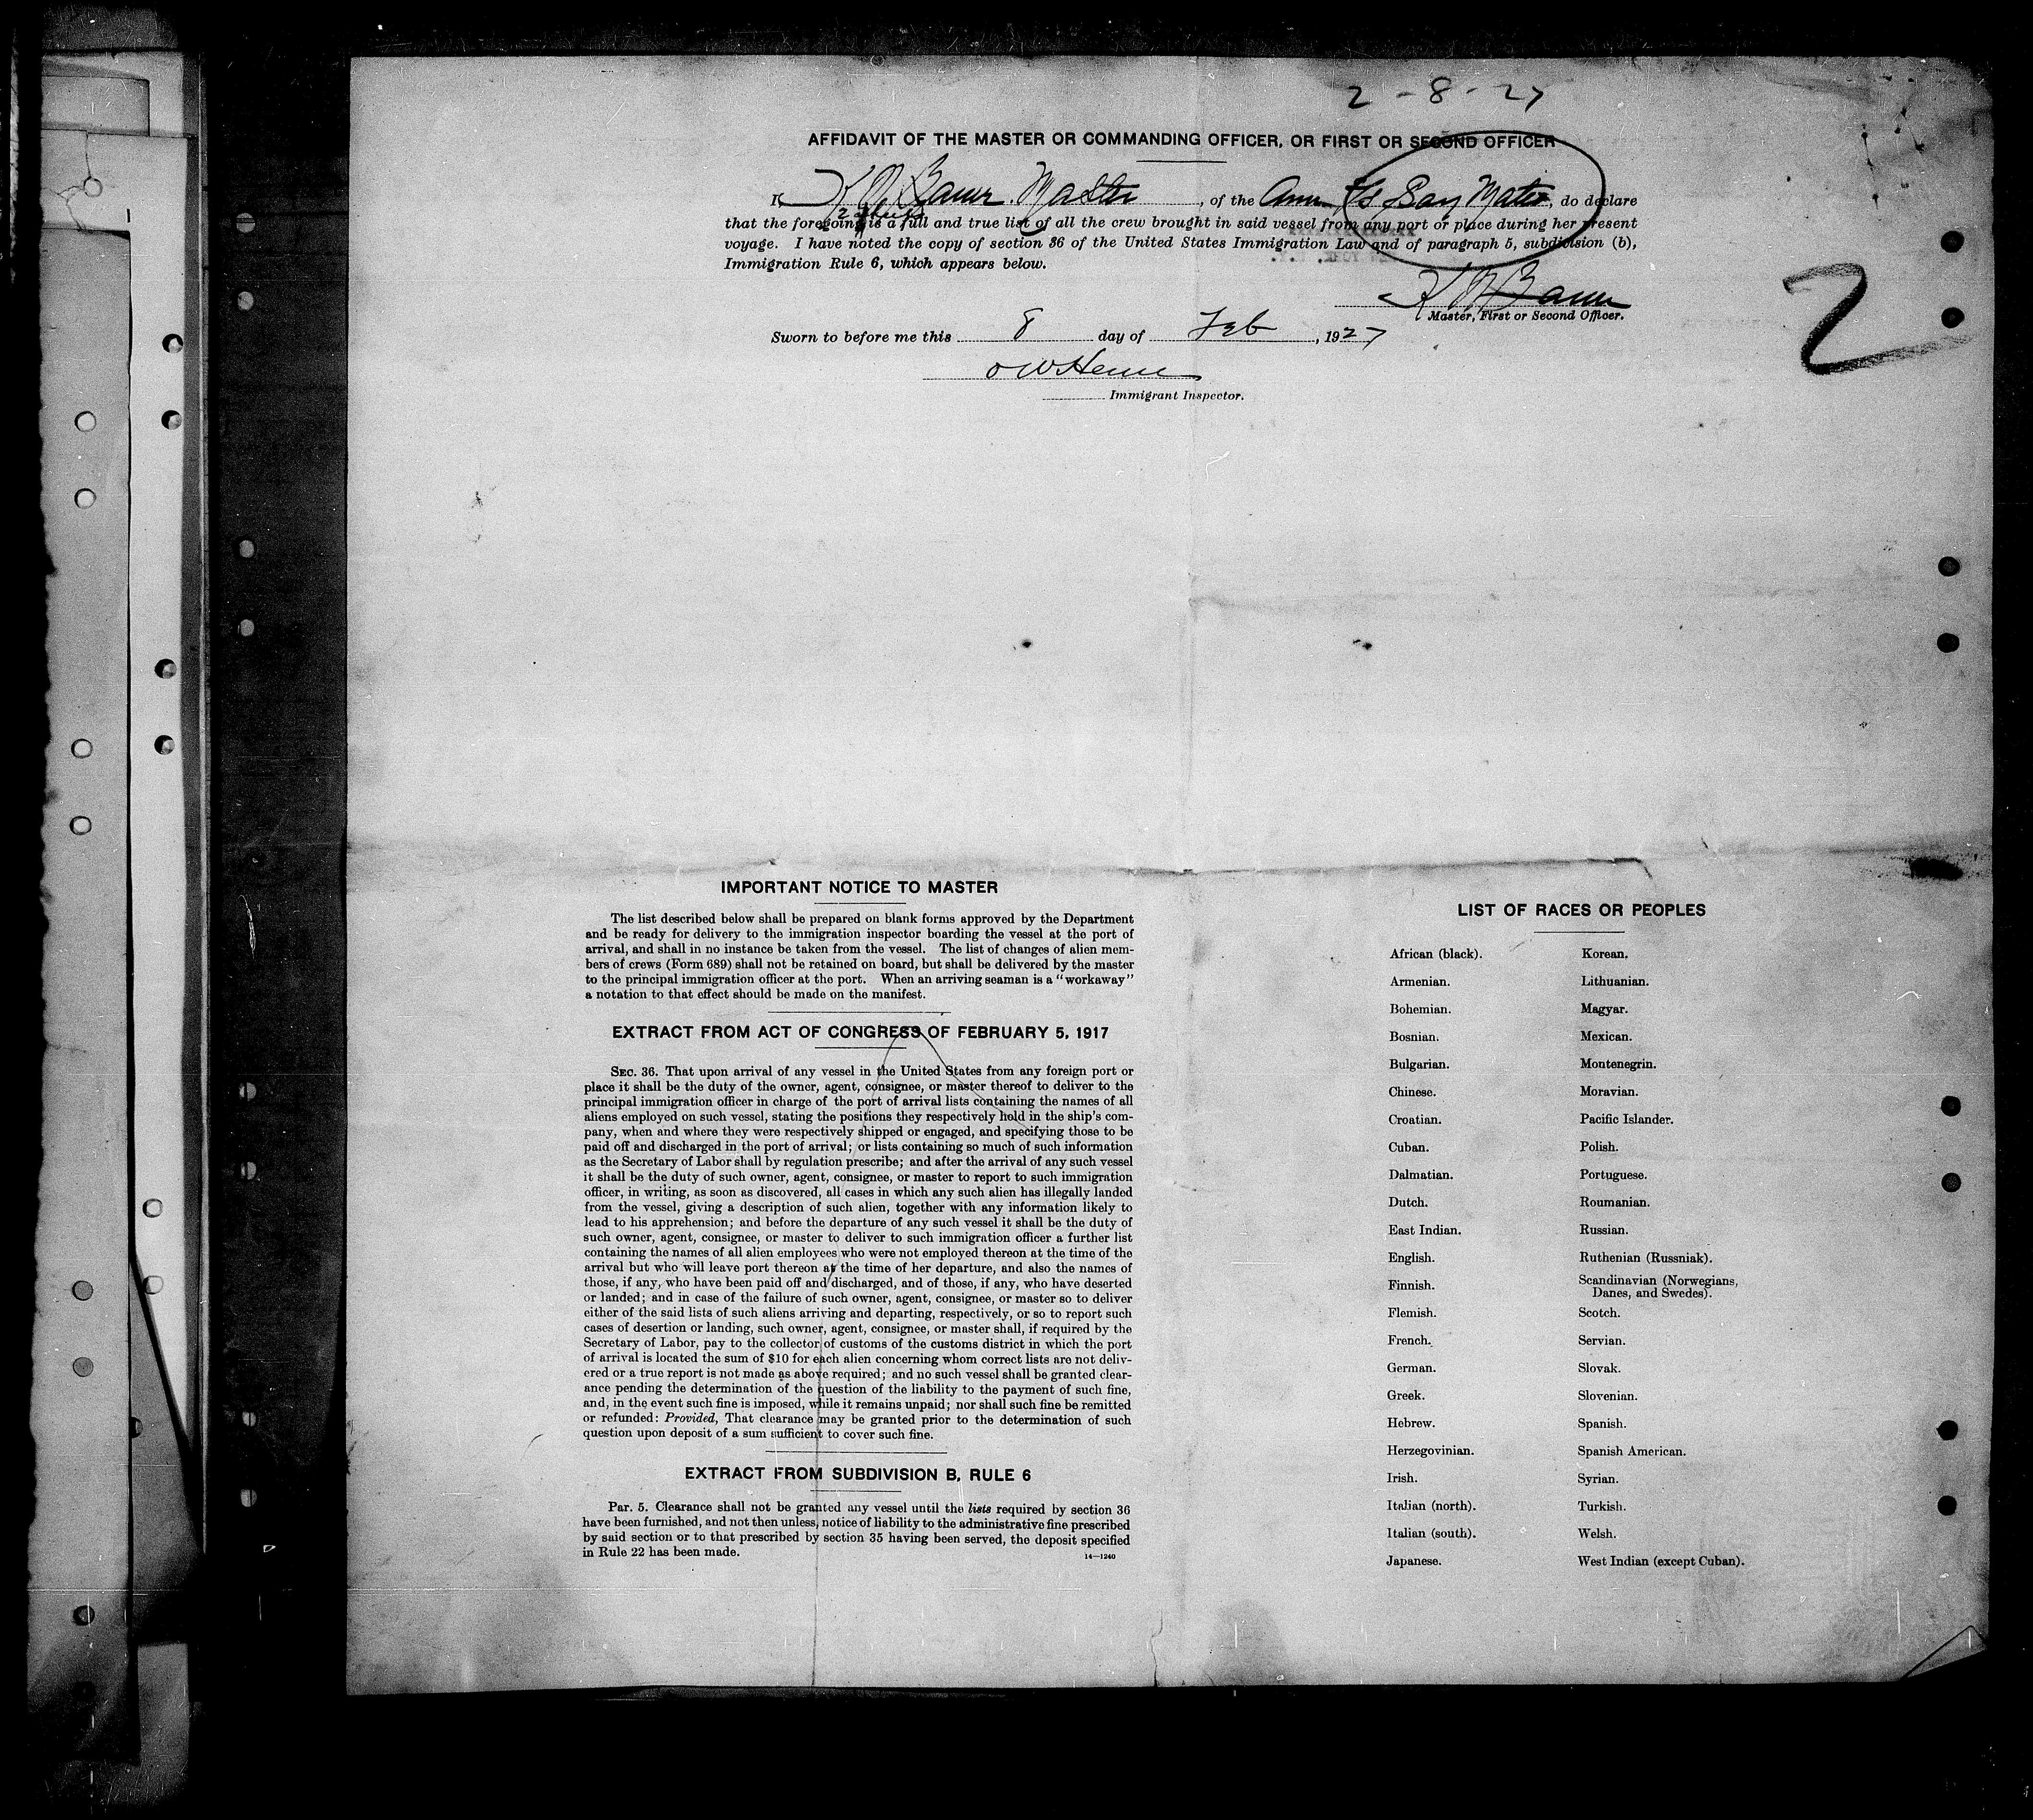 2 - 8 - 27
AFFIDAVIT OF THE MASTER OR COMMANDING OFFICER, OR FIRST OR SECOND OFFICER
I, Bauer. Master, of the Am. Ss San Mateo, do declare
2 sheets
that the foregoing is a full and true list of all the crew brought in said vessel from any port or place during her present
voyage. I have noted the copy of section 36 of the United States Immigration Law and of paragraph 5, subdivision (b),
Immigration Rule 6, which appears below.
Bauer
Master, First or Second Officer.
2
Sworn to before me this 8 day of Feb, 1927
Immigrant Inspector.
IMPORTANT NOTICE TO MASTER
The list described below shall be prepared on blank forms approved by the Department
and be ready for delivery to the immigration inspector boarding the vessel at the port of
arrival, and shall in no instance be taken from the vessel. The list of changes of alien mem-
bers of crews (Form 689) shall not be retained on board, but shall be delivered by the master
to the principal immigration officer at the port. When an arriving seaman is a "workaway"
a notation to that effect should be made on the manifest.
EXTRACT FROM ACT OF CONGRESS OF FEBRUARY 5, 1917
SEC. 36. That upon arrival of any vessel in the United States from any foreign port or
place it shall be the duty of the owner, agent, consignee, or master thereof to deliver to the
principal immigration officer in charge of the port of arrival lists containing the names of all
aliens employed on such vessel, stating the positions they respectively hold in the ship's com-
pany, when and where they were respectively shipped or engaged, and specifying those to be
paid off and discharged in the port of arrival; or lists containing so much of such information
as the Secretary of Labor shall by regulation prescribe; and after the arrival of any such vessel
it shall be the duty of such owner, agent, consignee, or master to report to such immigration
officer, in writing, as soon as discovered, all cases in which any such alien has illegally landed
from the vessel, giving a description of such alien, together with any information likely to
lead to his apprehension; and before the departure of any such vessel it shall be the duty of
such owner, agent, consignee, or master to deliver to such immigration officer a further list
containing the names of all alien employees who were not employed thereon at the time of the
arrival but who will leave port thereon at the time of her departure, and also the names of
those, if any, who have been paid off and discharged, and of those, if any, who have deserted
or landed; and in case of the failure of such owner, agent, consignee, or master so to deliver
either of the said lists of such aliens arriving and departing, respectively, or so to report such
cases of desertion or landing, such owner, agent, consignee, or master shall, if required by the
Secretary of Labor, pay to the collector of customs of the customs district in which the port
of arrival is located the sum of $10 for each alien concerning whom correct lists are not deliv-
ered or a true report is not made as above required; and no such vessel shall be granted clear-
ance pending the determination of the question of the liability to the payment of such fine,
and, in the event such fine is imposed, while it remains unpaid; nor shall such fine be remitted
or refunded: Provided, That clearance may be granted prior to the determination of such
question upon deposit of a sum sufficient to cover such fine.
EXTRACT FROM SUBDIVISION B, RULE 6
Par. 5. Clearance shall not be granted any vessel until the lists required by section 36
have been furnished, and not then unless, notice of liability to the administrative fine prescribed
by said section or to that prescribed by section 35 having been served, the deposit specified
in Rule 22 has been made.
14—1240
LIST OF RACES OR PEOPLES
African (black).
Armenian.
Bohemian.
Bosnian.
Bulgarian.
Chinese.
Croatian.
Cuban.
Dalmatian.
Dutch.
East Indian.
English.
Finnish.
Flemish.
French.
German.
Greek.
Hebrew.
Herzegovinian.
Irish.
Italian (north).
Italian (south).
Japanese.
Korean.
Lithuanian.
Magyar.
Mexican.
Montenegrin.
Moravian.
Pacific Islander.
Polish.
Portuguese.
Roumanian.
Russian.
Ruthenian (Russniak).
Scandinavian (Norwegians,
Danes, and Swedes).
Scotch.
Servian.
Slovak.
Slovenian.
Spanish.
Spanish American.
Syrian.
Turkish.
Welsh.
West Indian (except Cuban).